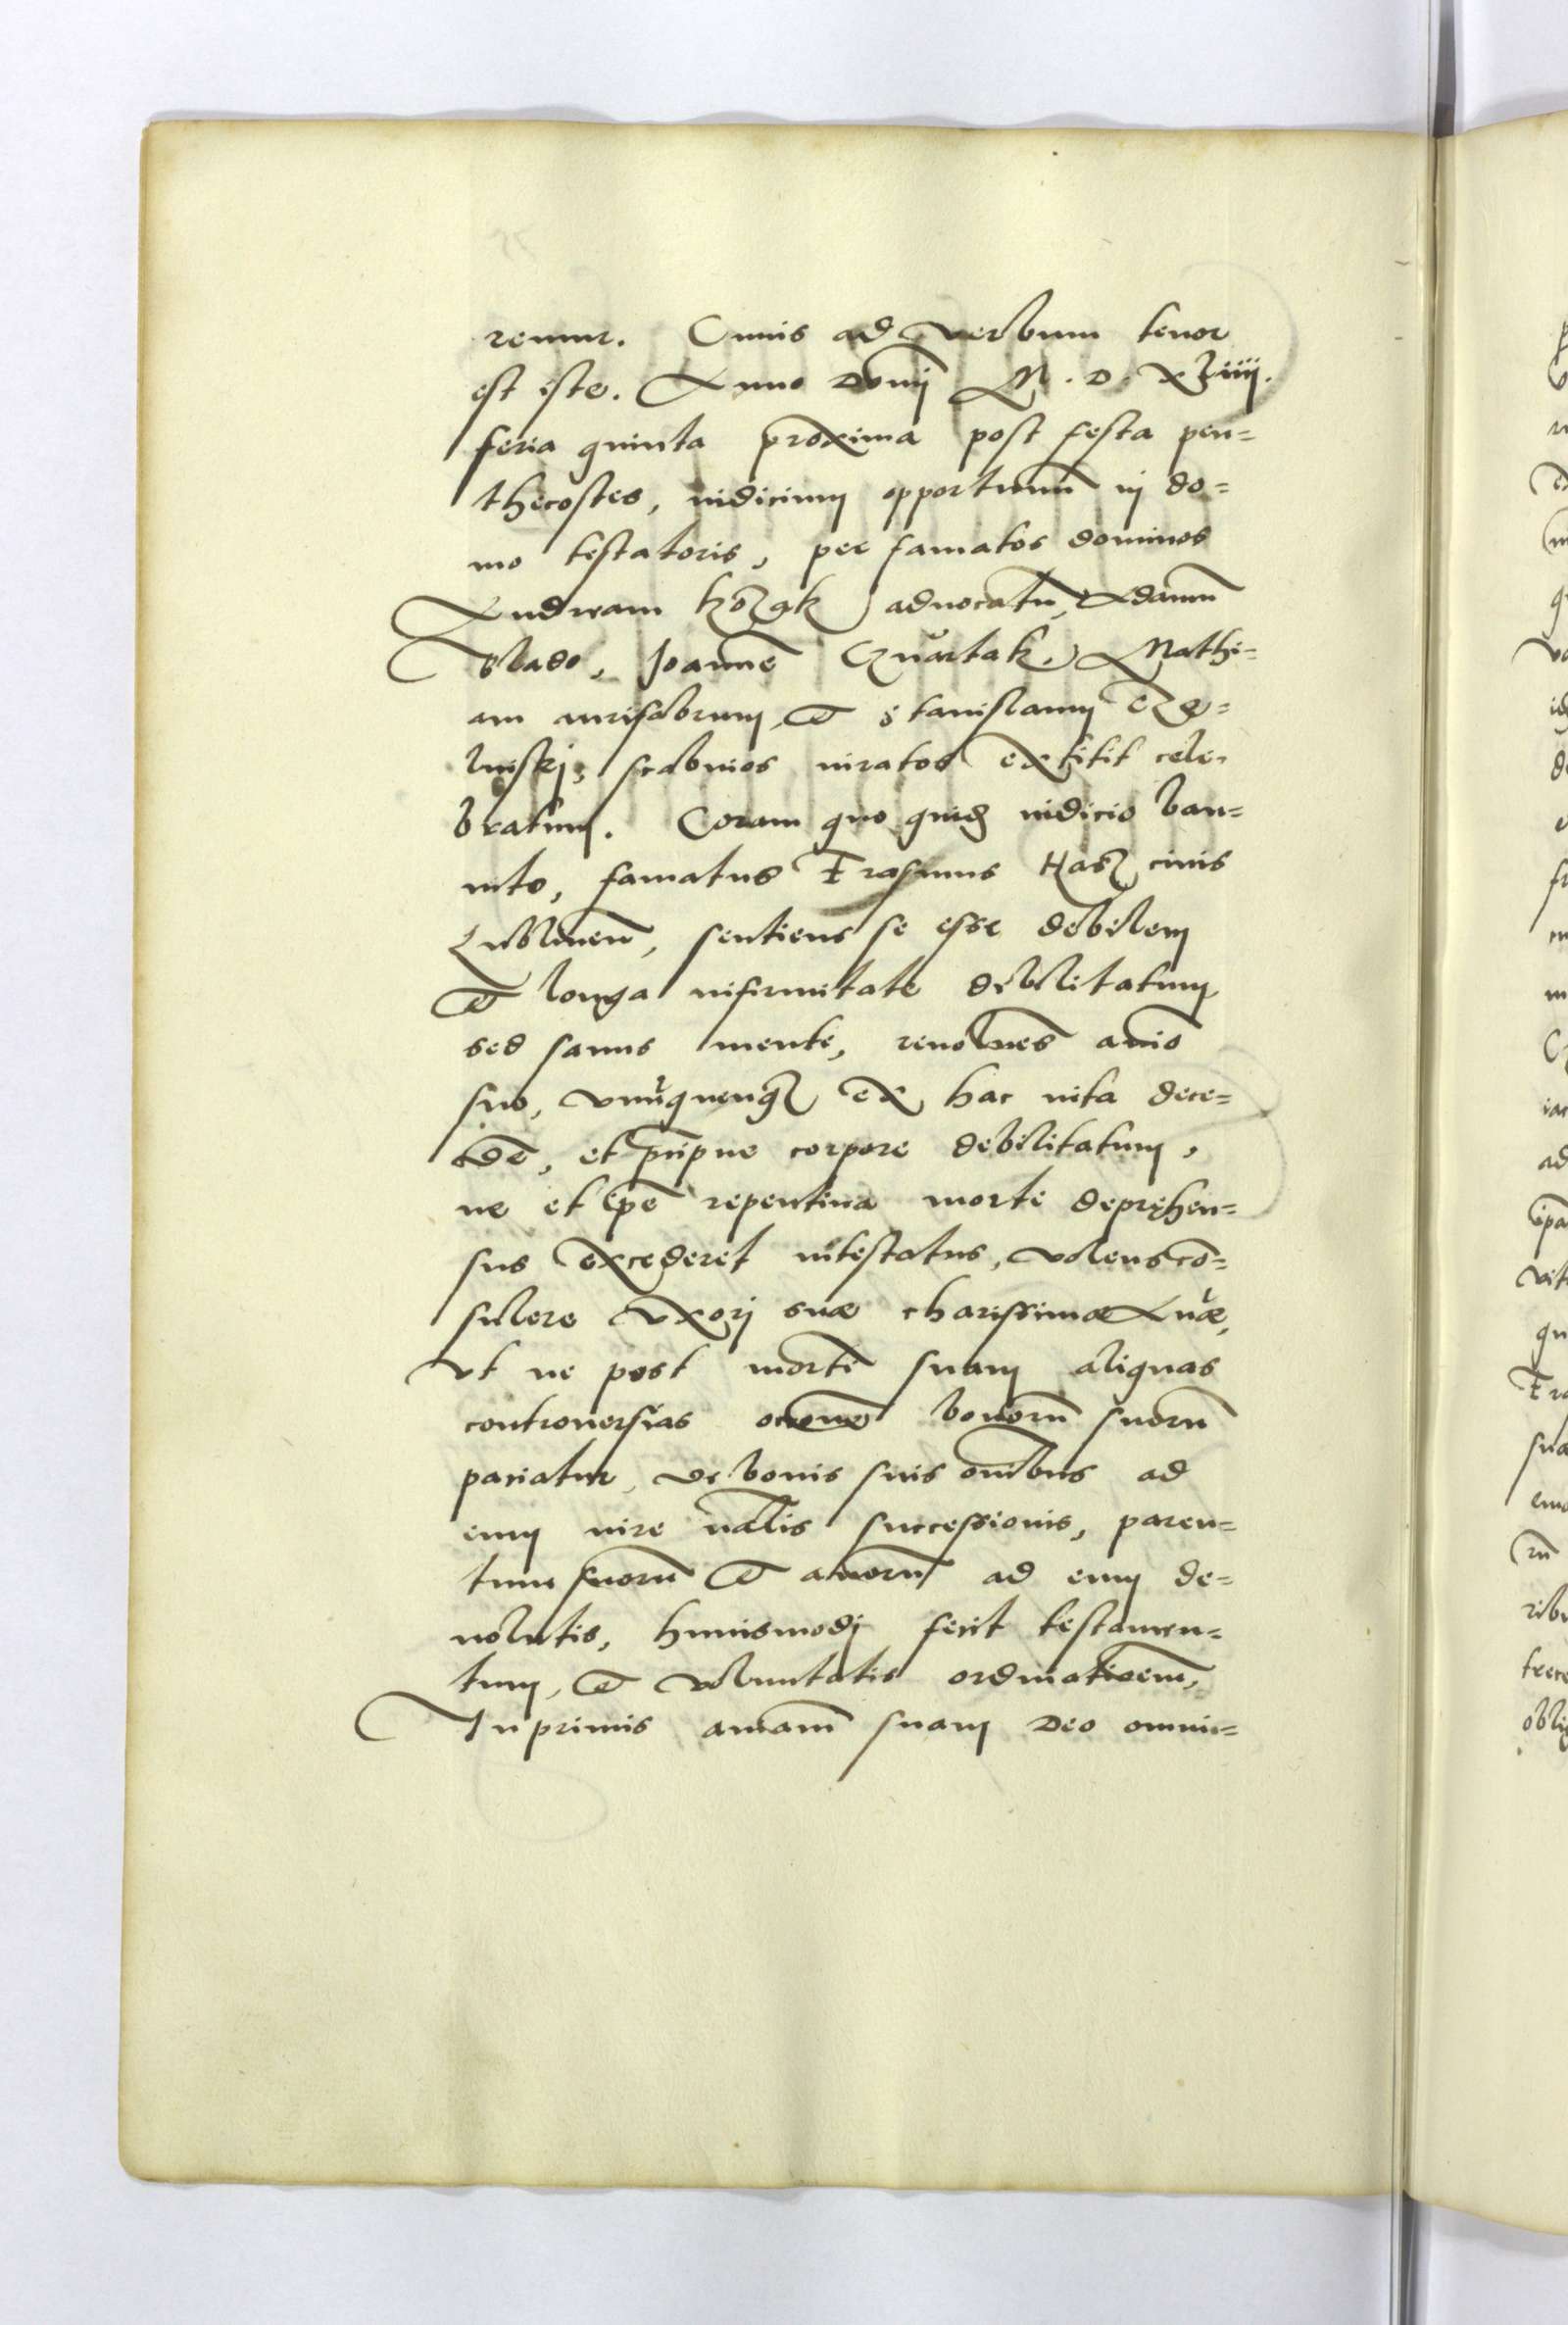 remur. Cuius ad verbum tenor
est iste. Anno Domj M. D. XLiiij.
feria quinta proxima post festa pen=
thecostes, iudicium opportunū in do=
mo testatoris, per famatos dominos
Andream kozak aduocatū, Adamū
blado, Joannē Czwartak, Mathi=
am aurifabrum, et Stanislaum Cze=
luiskj, scabinos iuratos extitit cele-
bratum. Coram quo quidē iudicio ban=
nito, famatus Erasmus Kasz ciuis
Lublinen̄, sentiens se esse debilem
et longa infirmitate debilitatum
sed sanus mente, reuoluēs aīo
suo, vnūquenqz ex hac vita dece=
dē, et p̄cipue corpore debilitatum,
ne et ipē repentina morte depręhen=
sus excederet intestatus, volens cō=
sulere vxorj suæ charissimæ Annæ,
vt ne post mortē suam aliquas
controuersias occōne bonorū suorū
patiatur, de bonis suis om̄ibus ad
eum iure nālis successionis, paren=
tum suorū et auorū ad eum de=
uolutis, huiusmodj fecit testamen=
tum, et voluntatis ordinatioēm,
Inprimis animam̄ suam Deo omni=